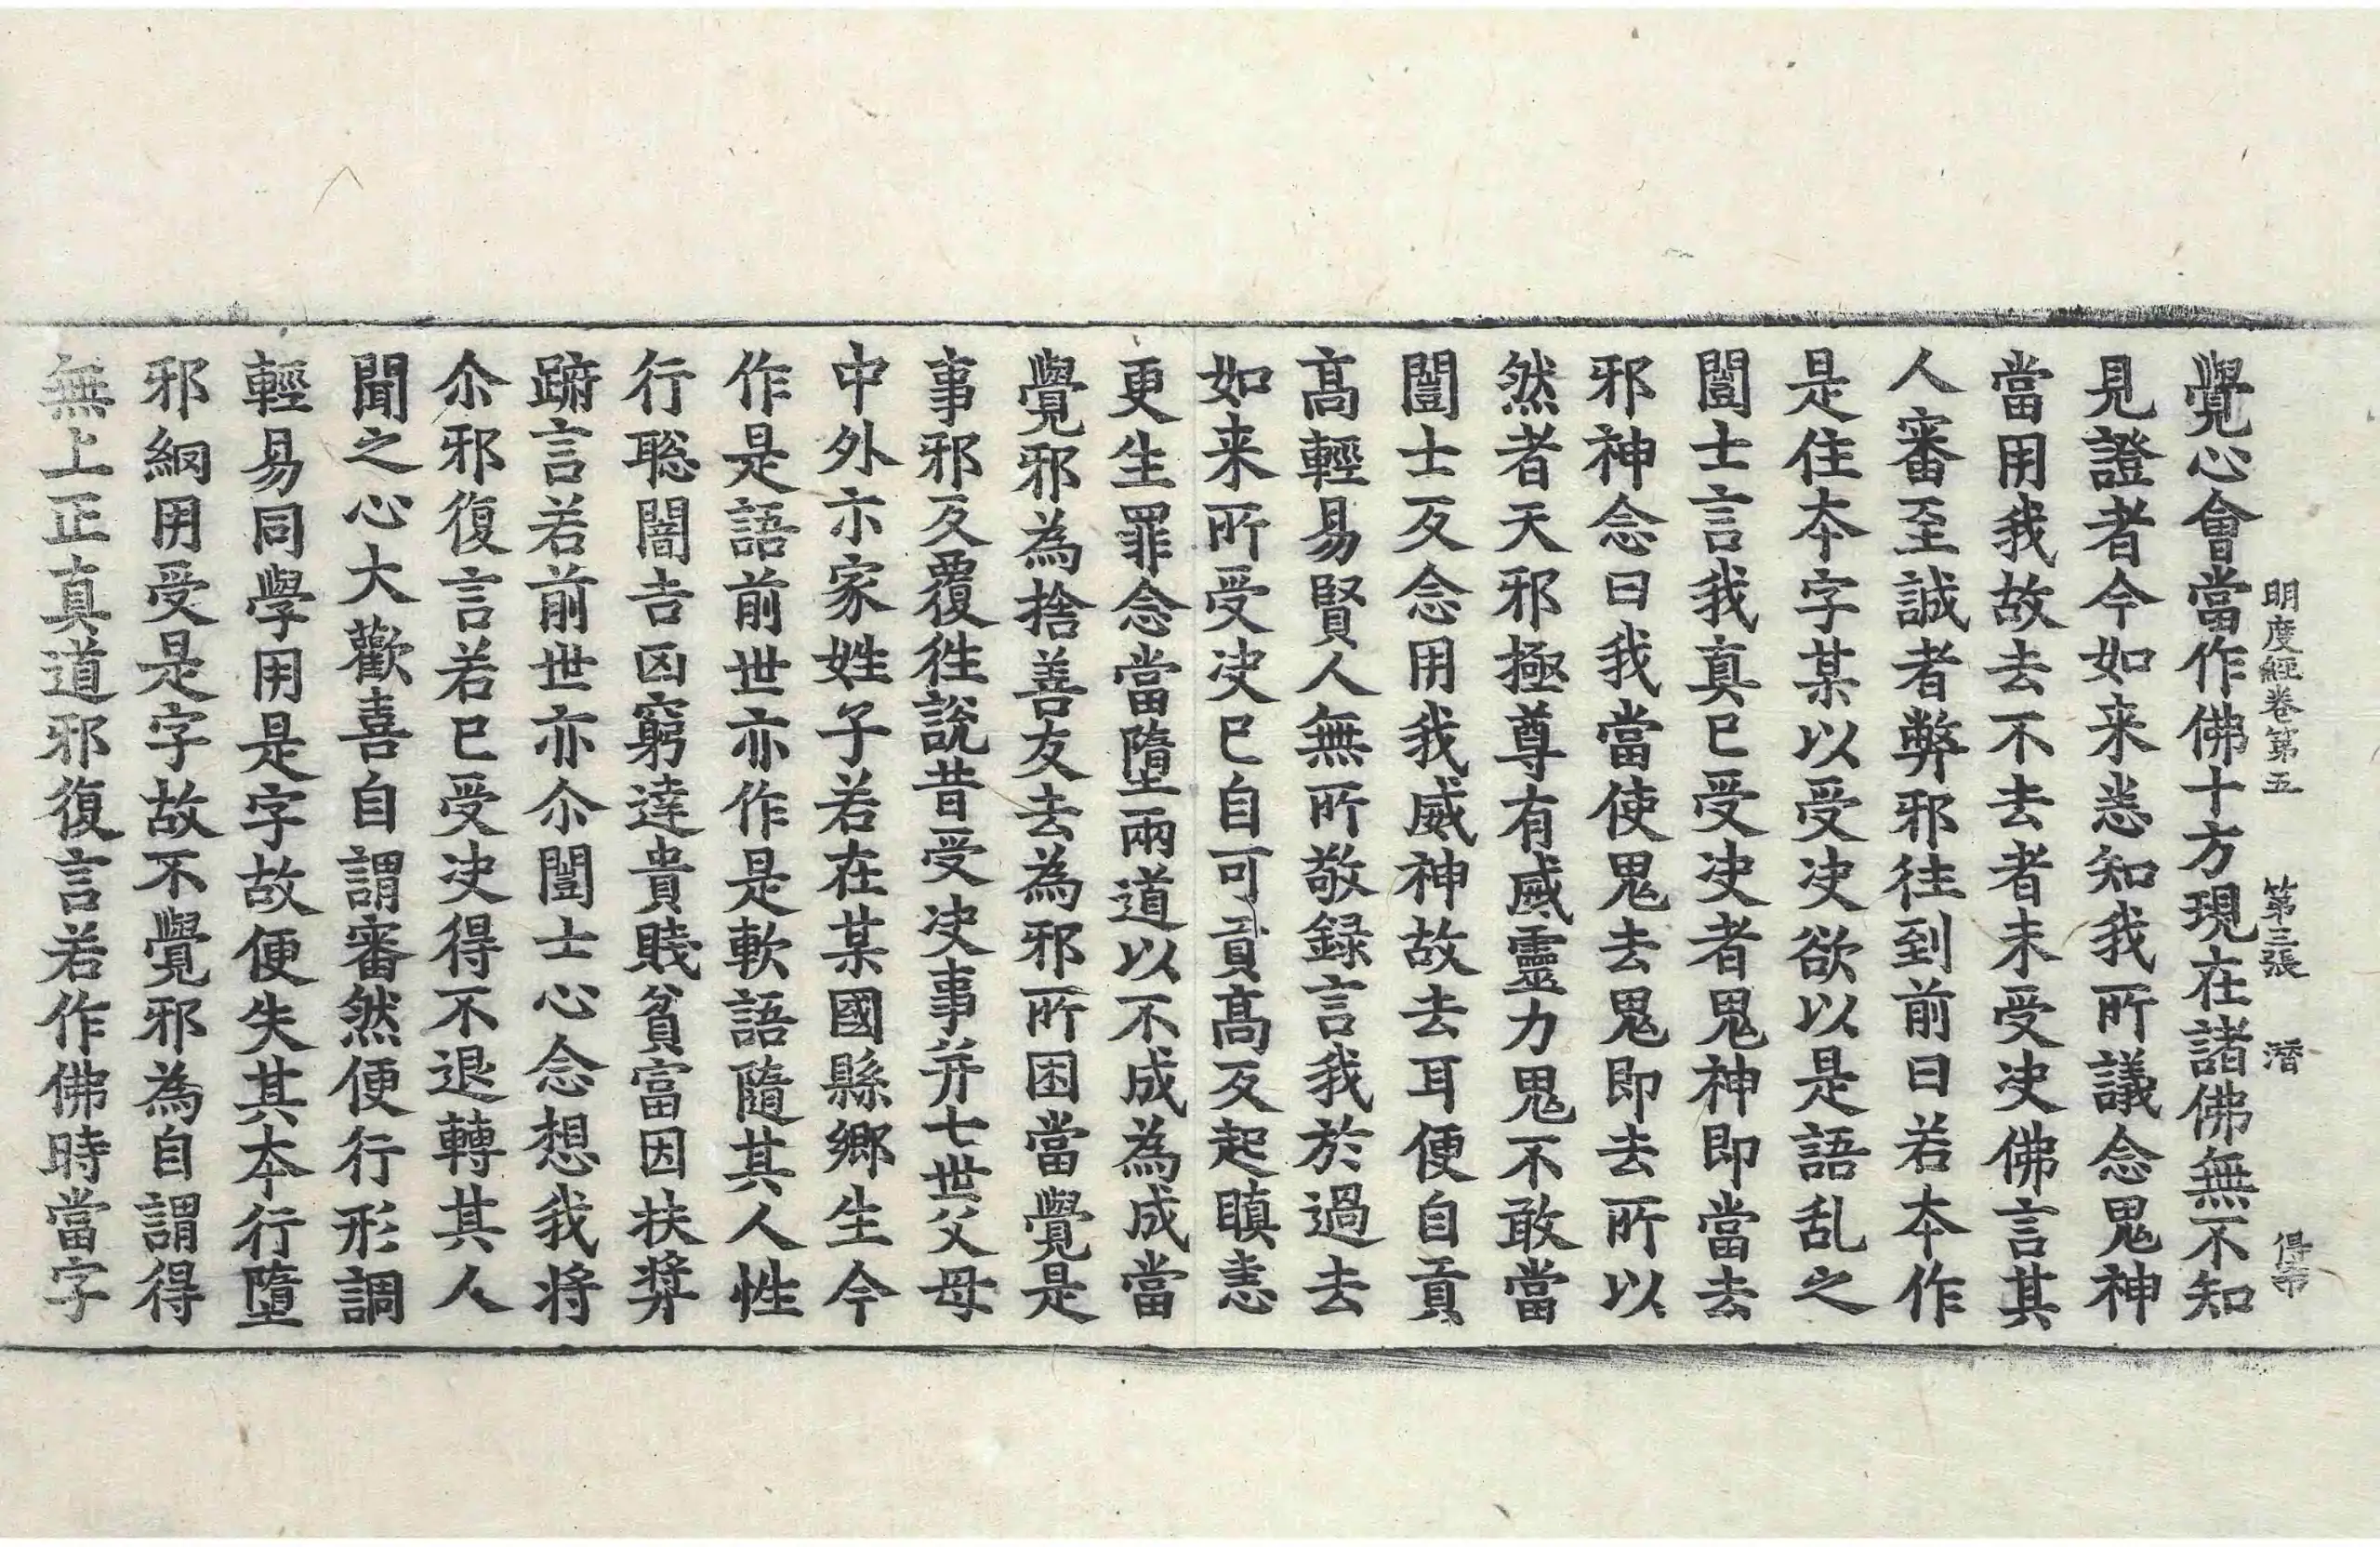 明度經卷第五 第三張 潛
覺心會當作佛十方現在諸佛無不知
見證者今如来悉知我所議念鬼神
當用我故去不去者未受决佛言其
人審至誠者弊邪往到前曰若本作
是住本字某以受决欲以是語乱之
闓士言我真已受决者鬼神即當去
邪神念曰我當使鬼去鬼即去所以
然者天邪極尊有威靈力鬼不敢當
闓士反念用我威神故去耳便自貢
髙輕易賢人無所敬録言我於過去
如来所受决已自可貢髙反起瞋恚
更生罪念當墮兩道以不成為成當
覺邪為捨善友去為邪所困當覺是
事邪反覆往說昔受决事并七世父母
中外亦家姓子若在某國縣鄉生今
作是語前世亦作是軟語隨其人性
行聡闇吉凶窮達貴賤貧富因扶奬
䟽言若前世亦尒闓士心念想我将
尒邪復言若已受决得不退轉其人
聞之心大歡喜自謂審然便行形調
輕易同學用是字故便失其本行墮
邪網用受是字故不覺邪為自謂得
無上正真道邪復言若作佛時當字